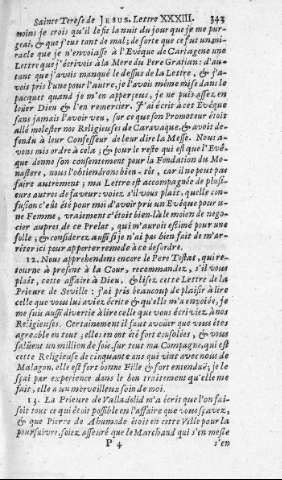 Sainte Terese de JESUS. Lettre XXXIII. 343
moins je crois qu'il se fit la nuit du jour que je me pur-
geai, & que j'eus tant de mal; de sorte que ce fut un mi-
racle que je n'envoiasse à l'Evêque de Cartagene une
Lettre que j'écrivois à la Mere du Pere Gratian: d'au-
tant que j'avois manqué le dessus de la Lettre, & j'a-
vois pris l'une pour l'autre, je l'avois même mise dans le
pacquet quand je m'en apperçeus, je ne puis assez en
loüer Dieu & l'en remercier. J'ai écrit à cet Evêque
sans jamais l'avoir veu, sur ce que son Promoteur étoit
allé molester nos Religieuses de Caravaque, & avoit de-
fendu à leur Confesseur de leur dire la Messe. Nous a-
vons mis ordre à cela; & pour le reste qui est que l'Evê-
que donne son consentement pour la Fondation du Mo-
nastere, nous l'obtiendrons bien-tôt, car il ne peut pas
faire autrement; ma Lettre est accompagnée de plusi-
eurs autres de faveur: voiez, s'il vous plait, quelle con-
fusion c'eût été pour moi d'avoir pris un Evêque pour u-
ne Femme, vraiment c'étoit bien-là le moien de nego-
cier aupres de ce Prelat, qui m'auroit estimé pour une
folle, & considerez aussi si je n'ai pas bien fait de m'ar-
rêter ici pour apporter remede à ce desordre.
12. Nous apprehendons encore le Pere Tostat, qui re-
tourne à present à la Cour, recommandez, s'il vous
plait, cette affaire à Dieu, & lisez cette Lettre de la
Prieure de Seville: j'ai pris beaucoup de plaisir à lire
celle que vous lui aviez écrite & qu'elle m'a envoiée, je
me suis aussi divertie à lire celle que vous écriviez à nos
Religieuses. Certainement il faut avoüer que vous étes
agreable en tout; elles en ont été fort consolées, & vous
saluent un million de fois, sur tout ma Compagne, qui est
cette Religieuse de cinquante ans qui vint avec nous de
Malagon, elle est fort bonne Fille & fort entenduë; je le
sçai par experience dans le bon traitement qu'elle me
fait, elle a un merveilleux soin de moi.
13. La Prieure de Valladolid m'a écrit que l'on fai-
soit tout ce qui étoit possible en l'affaire que vous sçavez,
& que Pierre de Ahumade étoit en cette Ville pour la
poursuivre, soiez asseuré que le Marchand qui s'en mesle
P 4 s'en